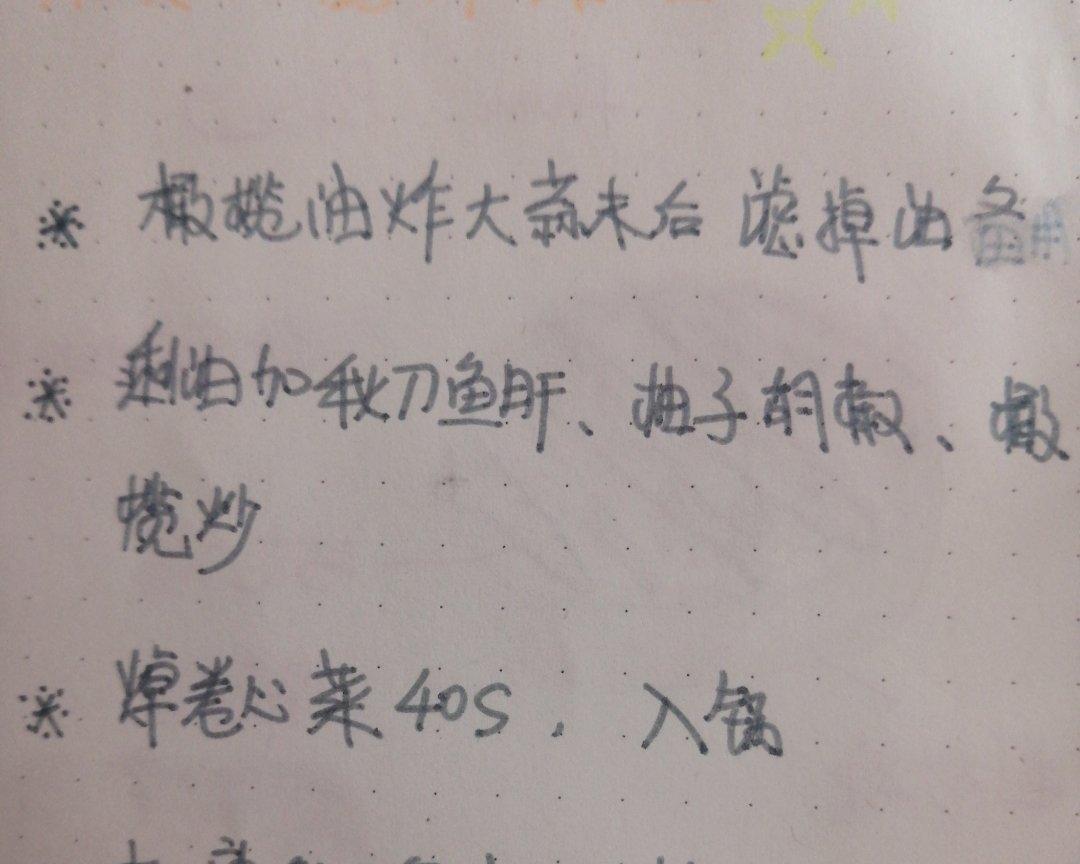 ※ 橄榄油炸大蒜末后 滤掉油备用
※ 剩油加秋刀鱼肝、柚子胡椒、橄
榄炒
※ 焯卷心菜40S，入锅